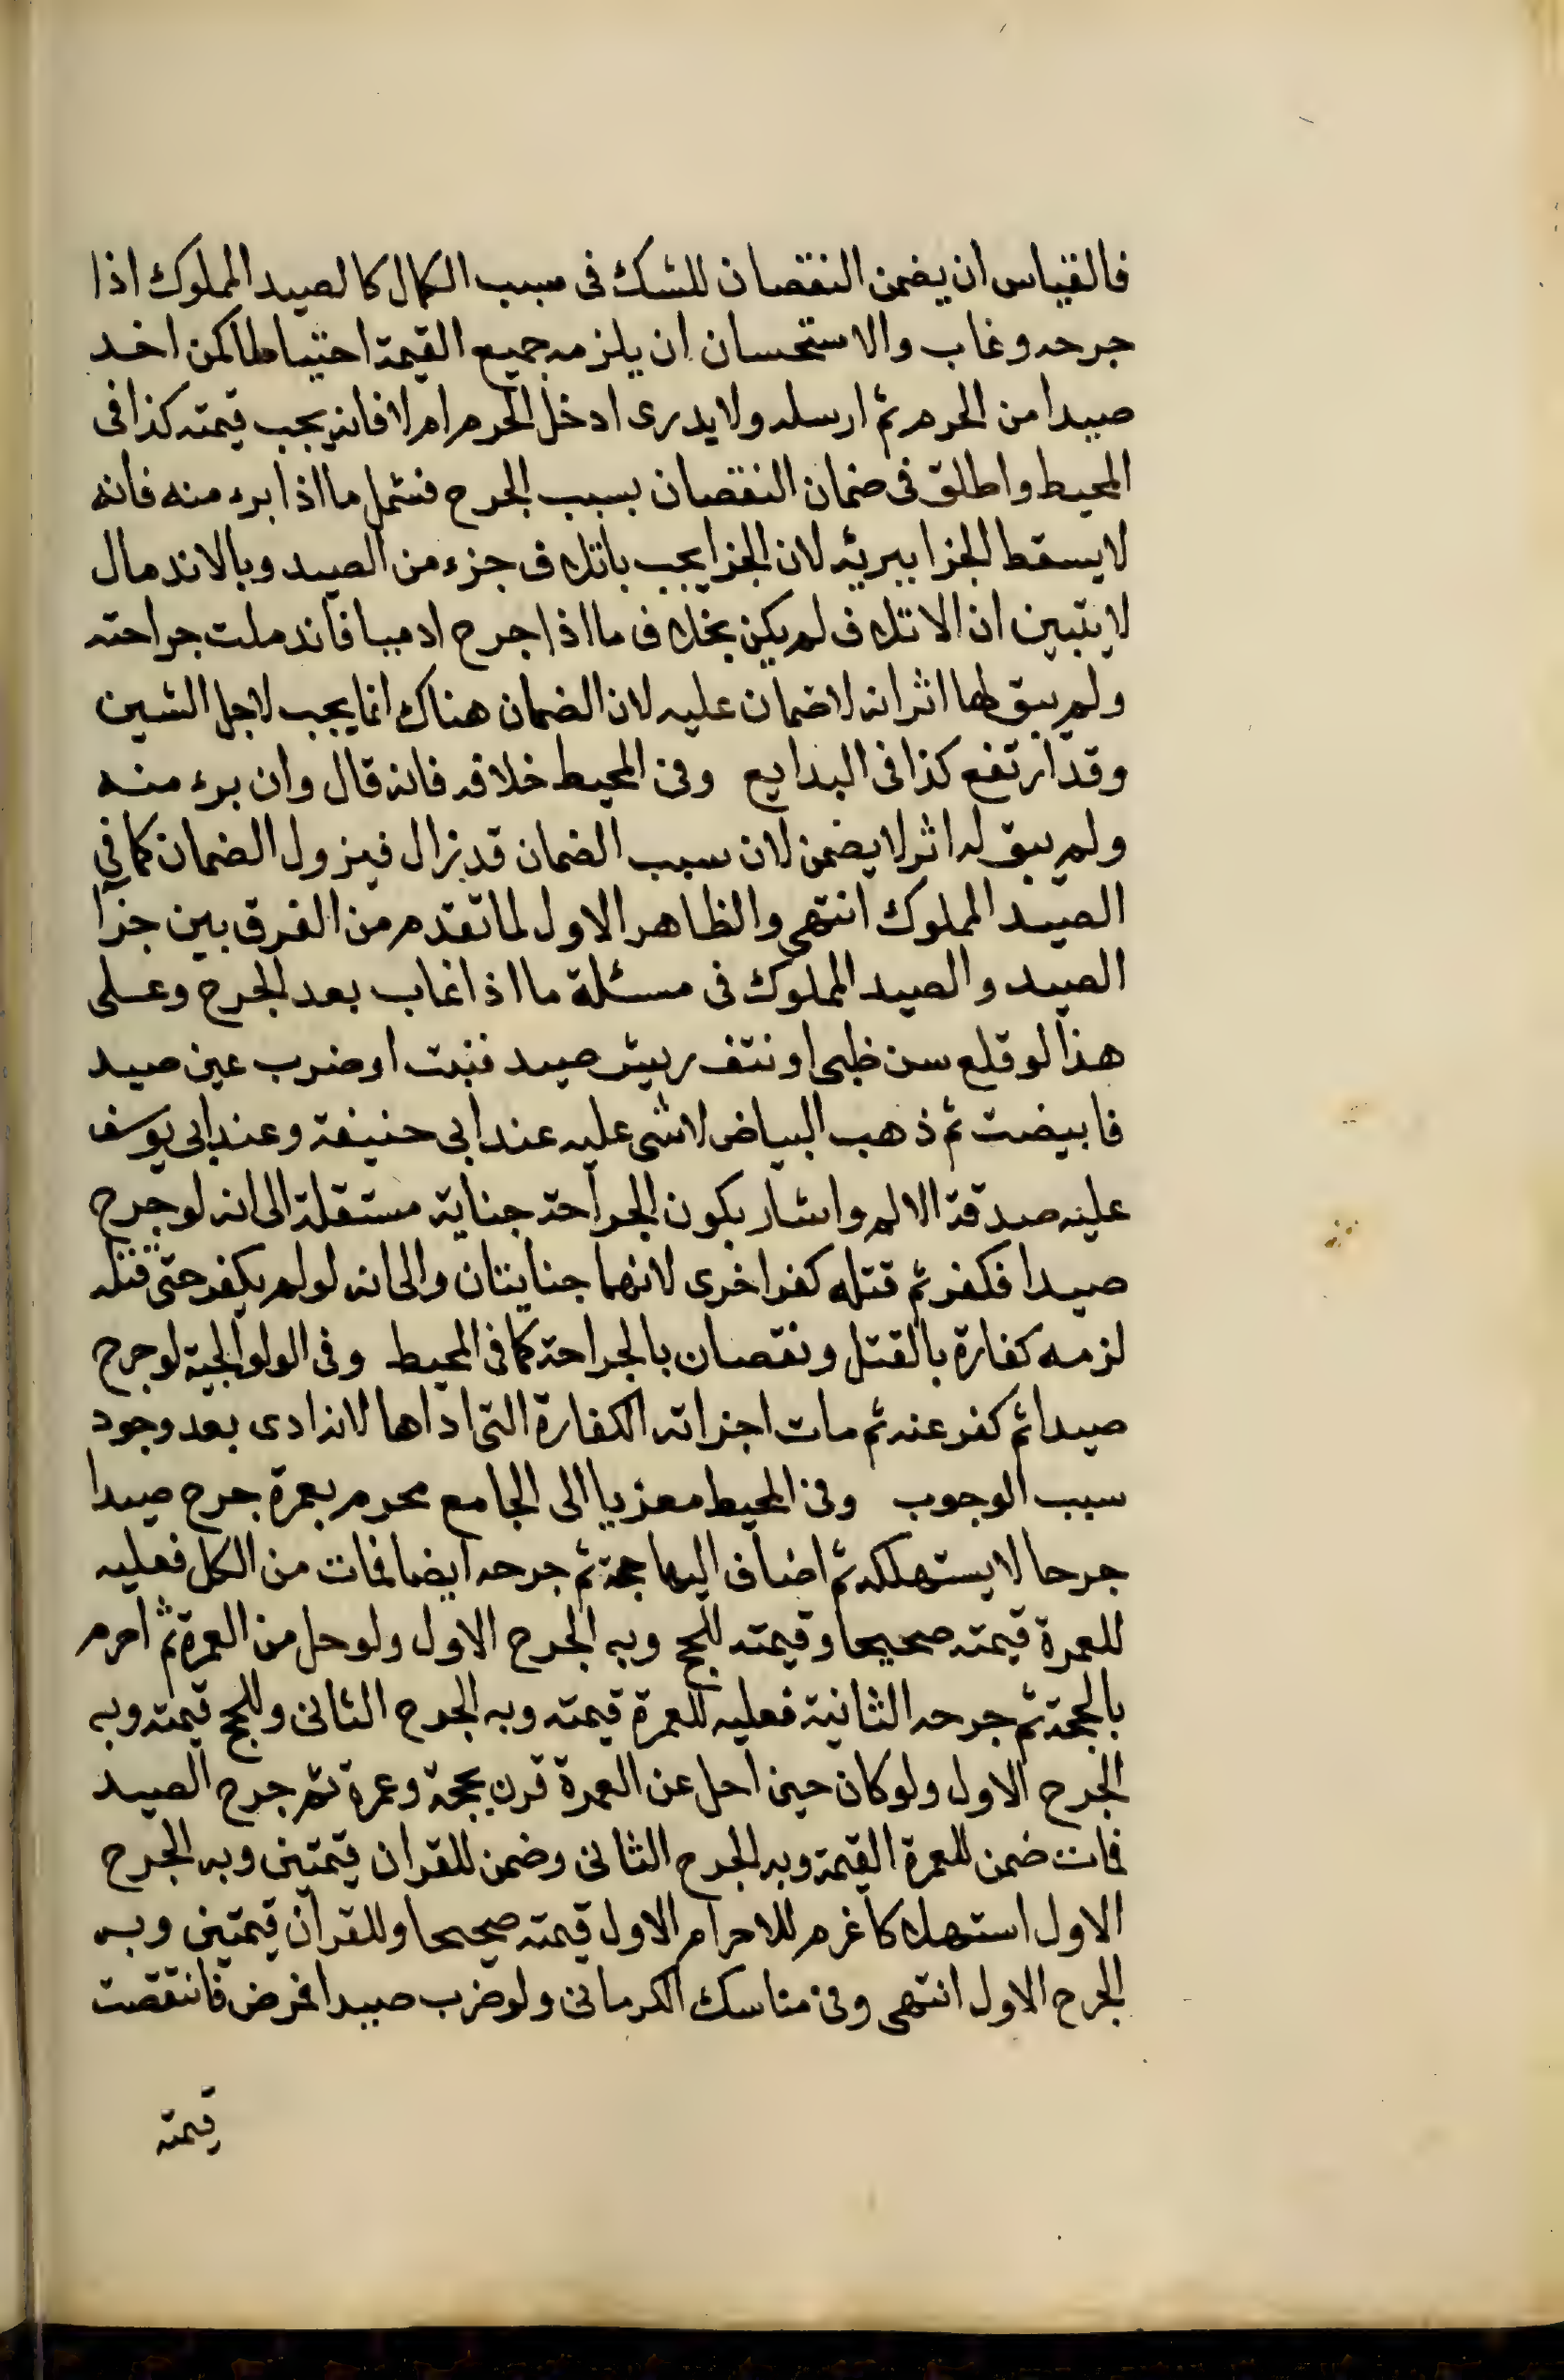 فالقياس ان يضمن النقصان للشك فى سبب الكمال كالصيد المملوك اذا
جرحه وغاب والاستحسان ان يلزمه جميع القيمة احتياطا كمن اخد
صيدا من الحرم ثم ارسله ولا يدرى ادخل الحرم ام لا فانه يجب قيمته كذا فى
المحيط واطلق فى ضمان النقصان بسبب الجرح فشمل ما اذا برء منه فانه
لا يسقط الجزا ببريه لان الجزا يجب باتلاف جزء من الصيد وبالاندمال
لا يتبين ان الاتلاف لم يكن بخلاف ما اذا جرح ادميا فاندملت جراحته
ولم يبق لها اثر انه لا ضمان عليه لان الضمان هناك انما يجب لاجل الشين
وقد ارتفع كذا فى البدايع وفى المحيط خلافه فانه قال وان برء منه
ولم يبق له اثر لا يضمن لان سبب الضمان قد زال فيزول الضمان كما فى
الصيد المملوك انتهى والظاهر الاول لما تقدم من الفرق بين جزا
الصيد والصيد المملوك فى مسئلة ما اذا غاب بعد الجرح وعلى
هذا لو قلع سن ظبى او نتف ريش صيد فنبت او ضرب عين صيد
فابيضت ثم ذهب البياض لا شى عليه عند ابى حنيفة وعند ابى يوسف
عليه صدقة الالم واشار بكون الجراحة جناية مستقلة الى انه لو جرح
صيدا فكفر ثم قتله كفر اخرى لانهما جنايتان والى انه لو لم يكفر حتى قتله
لزمه كفارة بالقتل ونقصان بالجراحة كما فى المحيط وفى الولوالجية لو جرح
صيدا ثم كفر عنه ثم مات اجزاته الكفارة التى اداها لانه ادى بعد وجود
سبب الوجوب وفى المحيط معزيا الى الجامع محرم بعمرة جرح صيدا
جرحا لا يستهلكه ثم اضاف اليها حجة ثم جرحه ايضا فمات من الكل فعليه
للعمرة قيمته صحيحا وقيمته للحج وبه الجرح الاول ولو حل من العمرة ثم احرم
بالحجة ثم جرحه الثانية فعليه للعمرة قيمته وبه الجرح الثانى وللحج قيمته وبه
الجرح الاول ولو كان حين احل عن العمرة قرن بحجة وعمرة ثم جرح الصيد
فمات ضمن للعمرة القيمة وبه الجرح الثانى وضمن للقران قيمتين وبه الجرح
الاول استهلاكا غرم للاحرام الاول قيمته صحيحا وللقران قيمتين وبه
الجرح الاول انتهى وفى مناسك الكرمانى ولو ضرب صيدا فمرض فانتقصت
قيمته